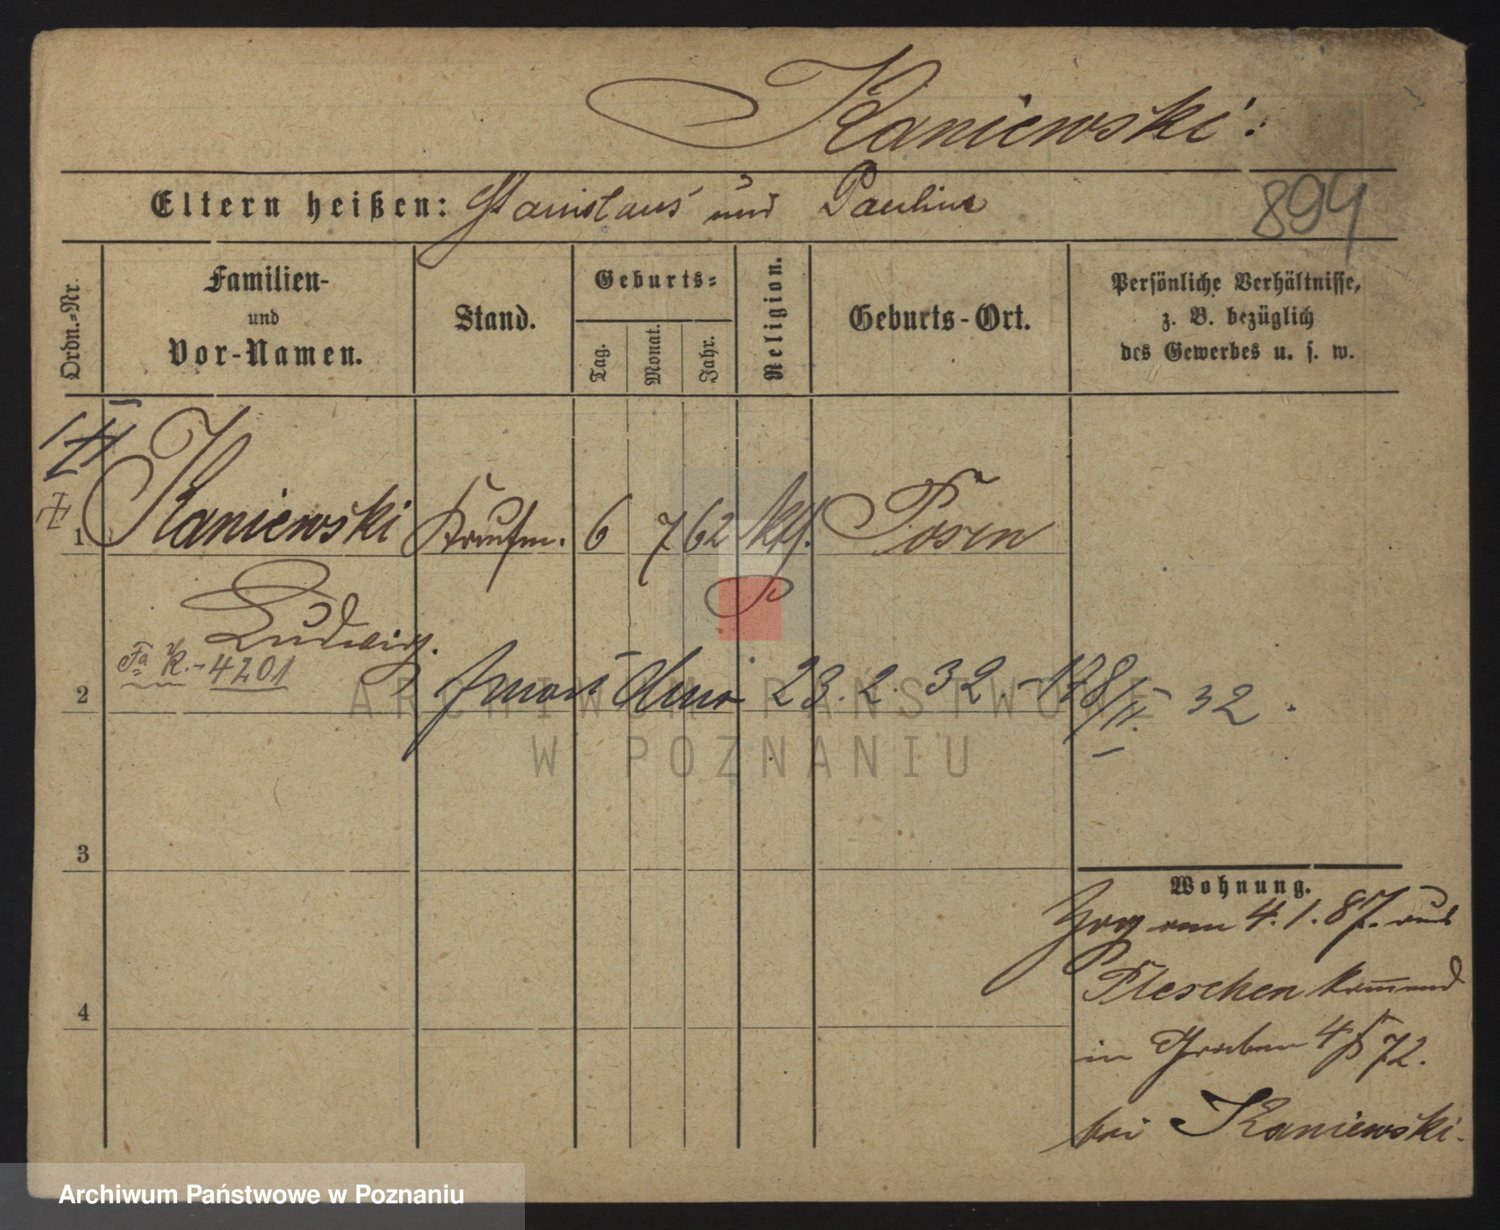 Kaniewski.
Eltern heißen: Stanislaus und Pauline
894
Ordn.-Nr.
Familien-
und
Vor-Namen.
Stand.
Geburts-
Tag.
Monat.
Jahr.
Religion.
Geburts-Ort.
Persönliche Verhältnisse,
z. B. bezüglich
des Gewerbes u. s. w.
1 Kaniewski Kaufm. 6 7 62 kth. Posen
Ludwig.
Fa K.-4201
2 zmarł dnia 23. 2. 32. - 128/II. 32.
3
4
Wohnung.
Zog am 4.1.87. aus
Pleschen kommend
in Graben 4 72.
bei Kaniewski.
ARCHIWUM PAŃSTWOWE
W POZNANIU
Archiwum Państwowe w Poznaniu